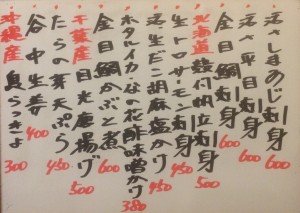 活〆しまあじ刺身 600
活〆平目刺身 600
金目鯛刺身 600
北海道 殻付帆立刺身 500
生トロサーモン刺身 450
活生だこ胡麻塩かけ 450
ホタルイカ・菜の花酢味噌かけ 380
金目鯛かぶと煮 600
千葉産 目光唐揚げ 500
たらの芽天ぷら 450
谷中生姜 400
沖縄産 島らっきょ 300